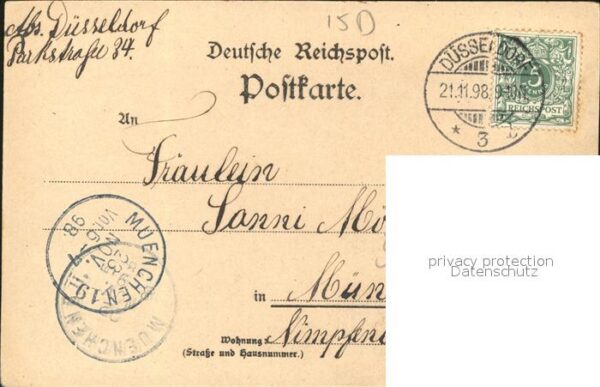 Abs. Düsseldorf
Parkstraße 34.
15D
Deutsche Reichspost.
Postkarte.
DÜSSELDORF
21.11.98. 9-10N.
* 3
5
REICHSPOST
An
Fräulein
Sanni Mö
MUENCHEN 19
98
NOV.
MUENCHEN
privacy protection
Datenschutz
in Mün
Wohnung:
(Straße und Hausnummer.)
Nimpfen